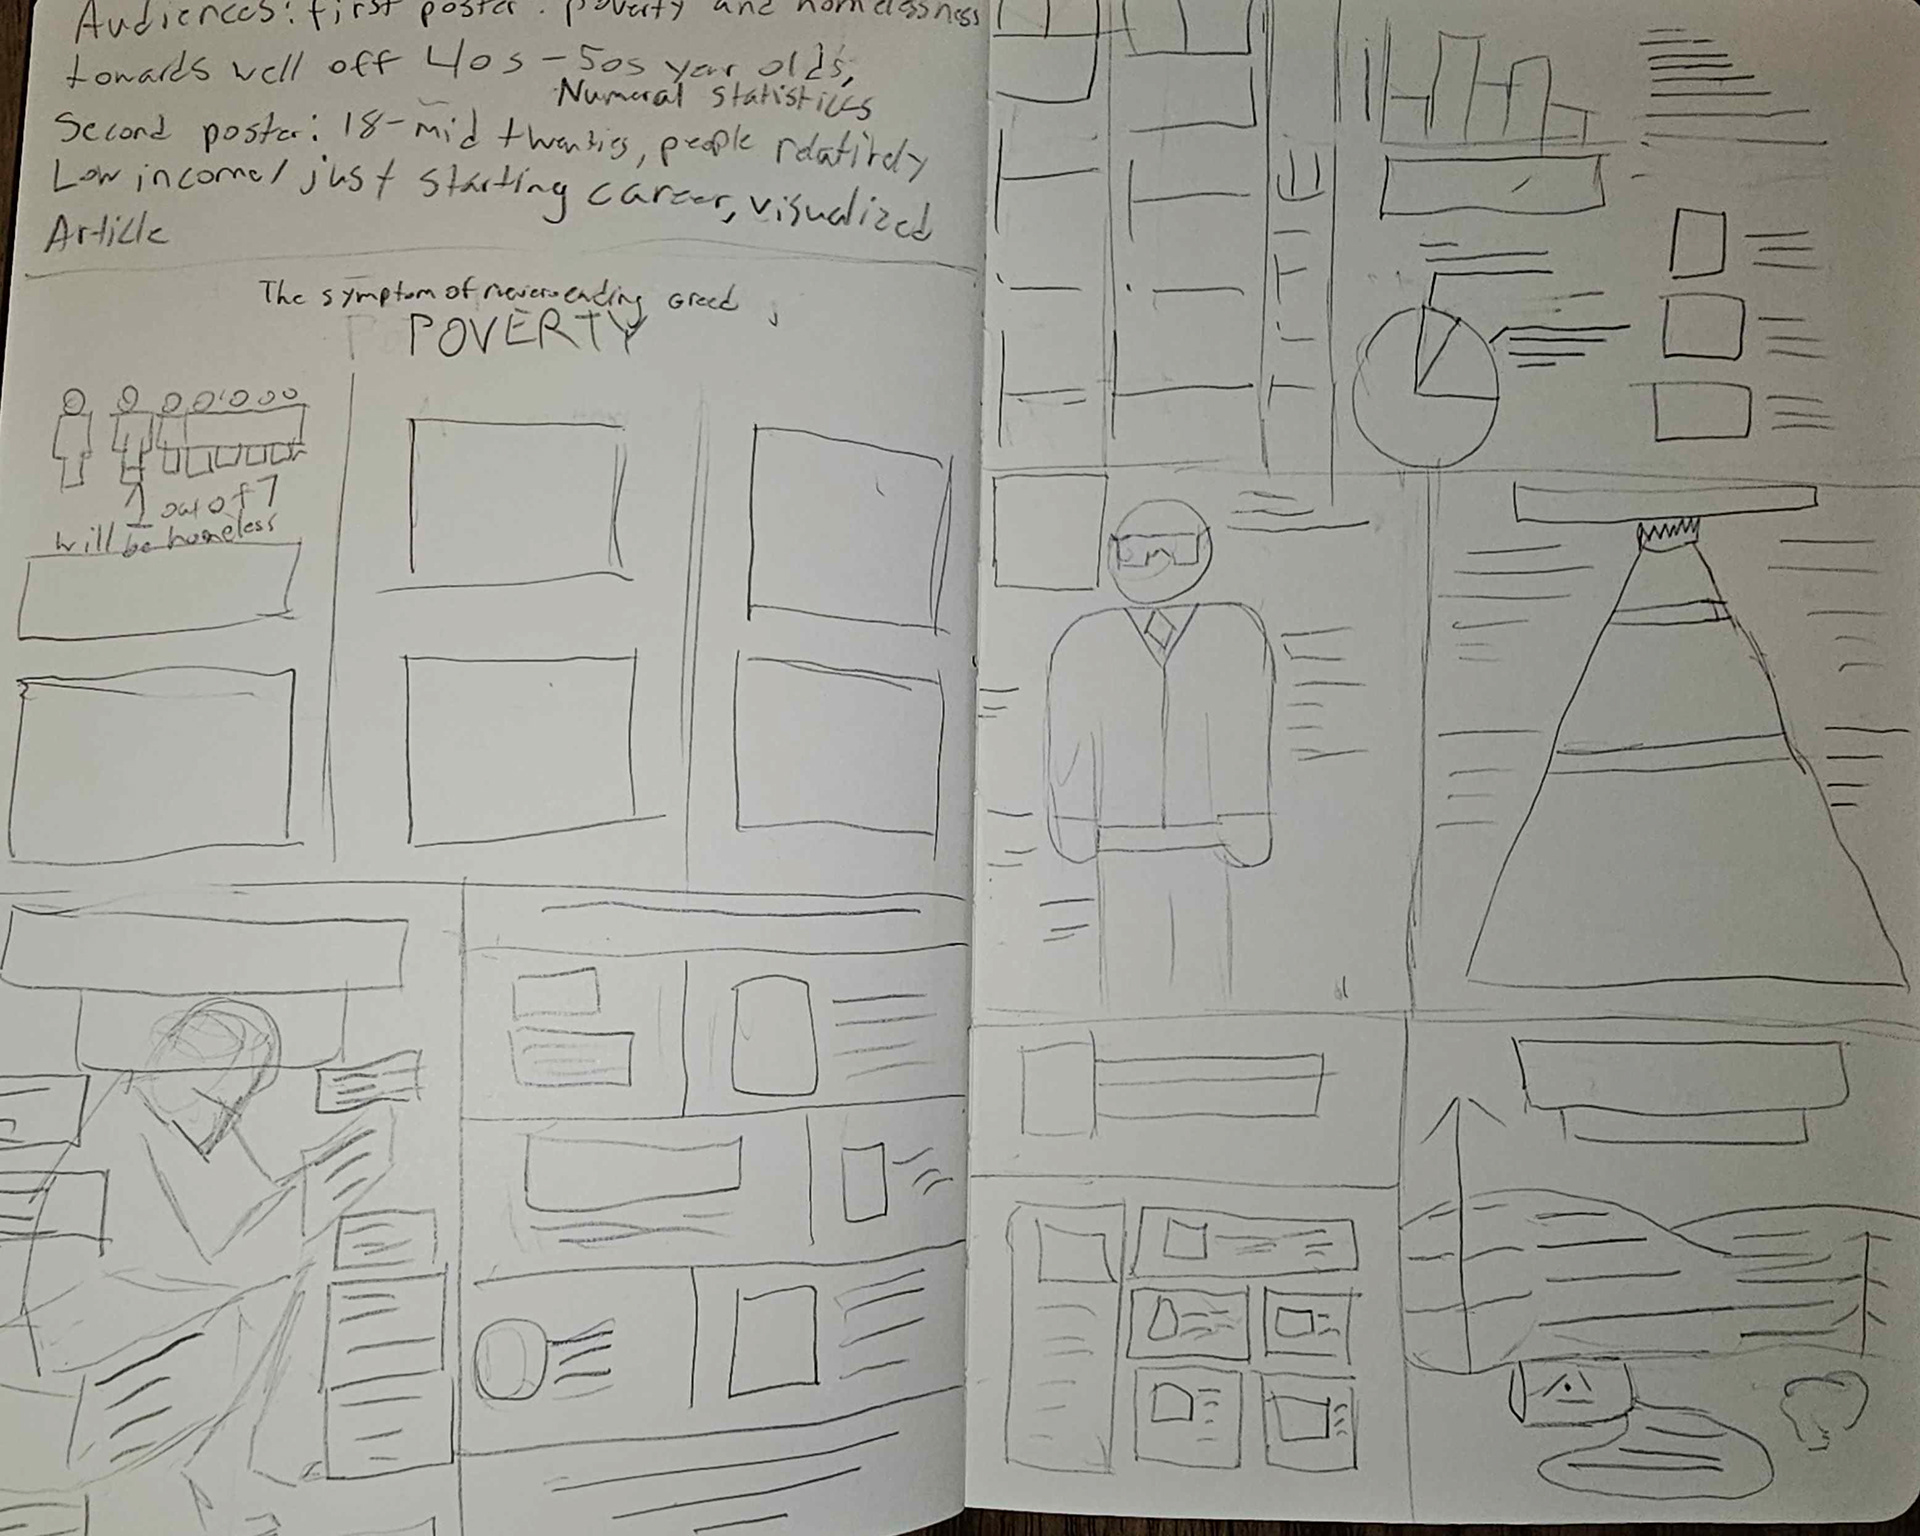 Audiences: first poster: poverty and homelessness
towards well off 40s-50s year olds,
Numeral statistics
Second poster: 18-mid twenties, people relatively
Low income/ just starting career, visualized
Article
The symptom of never ending Greed
POVERTY
1 out of 7
will be homeless